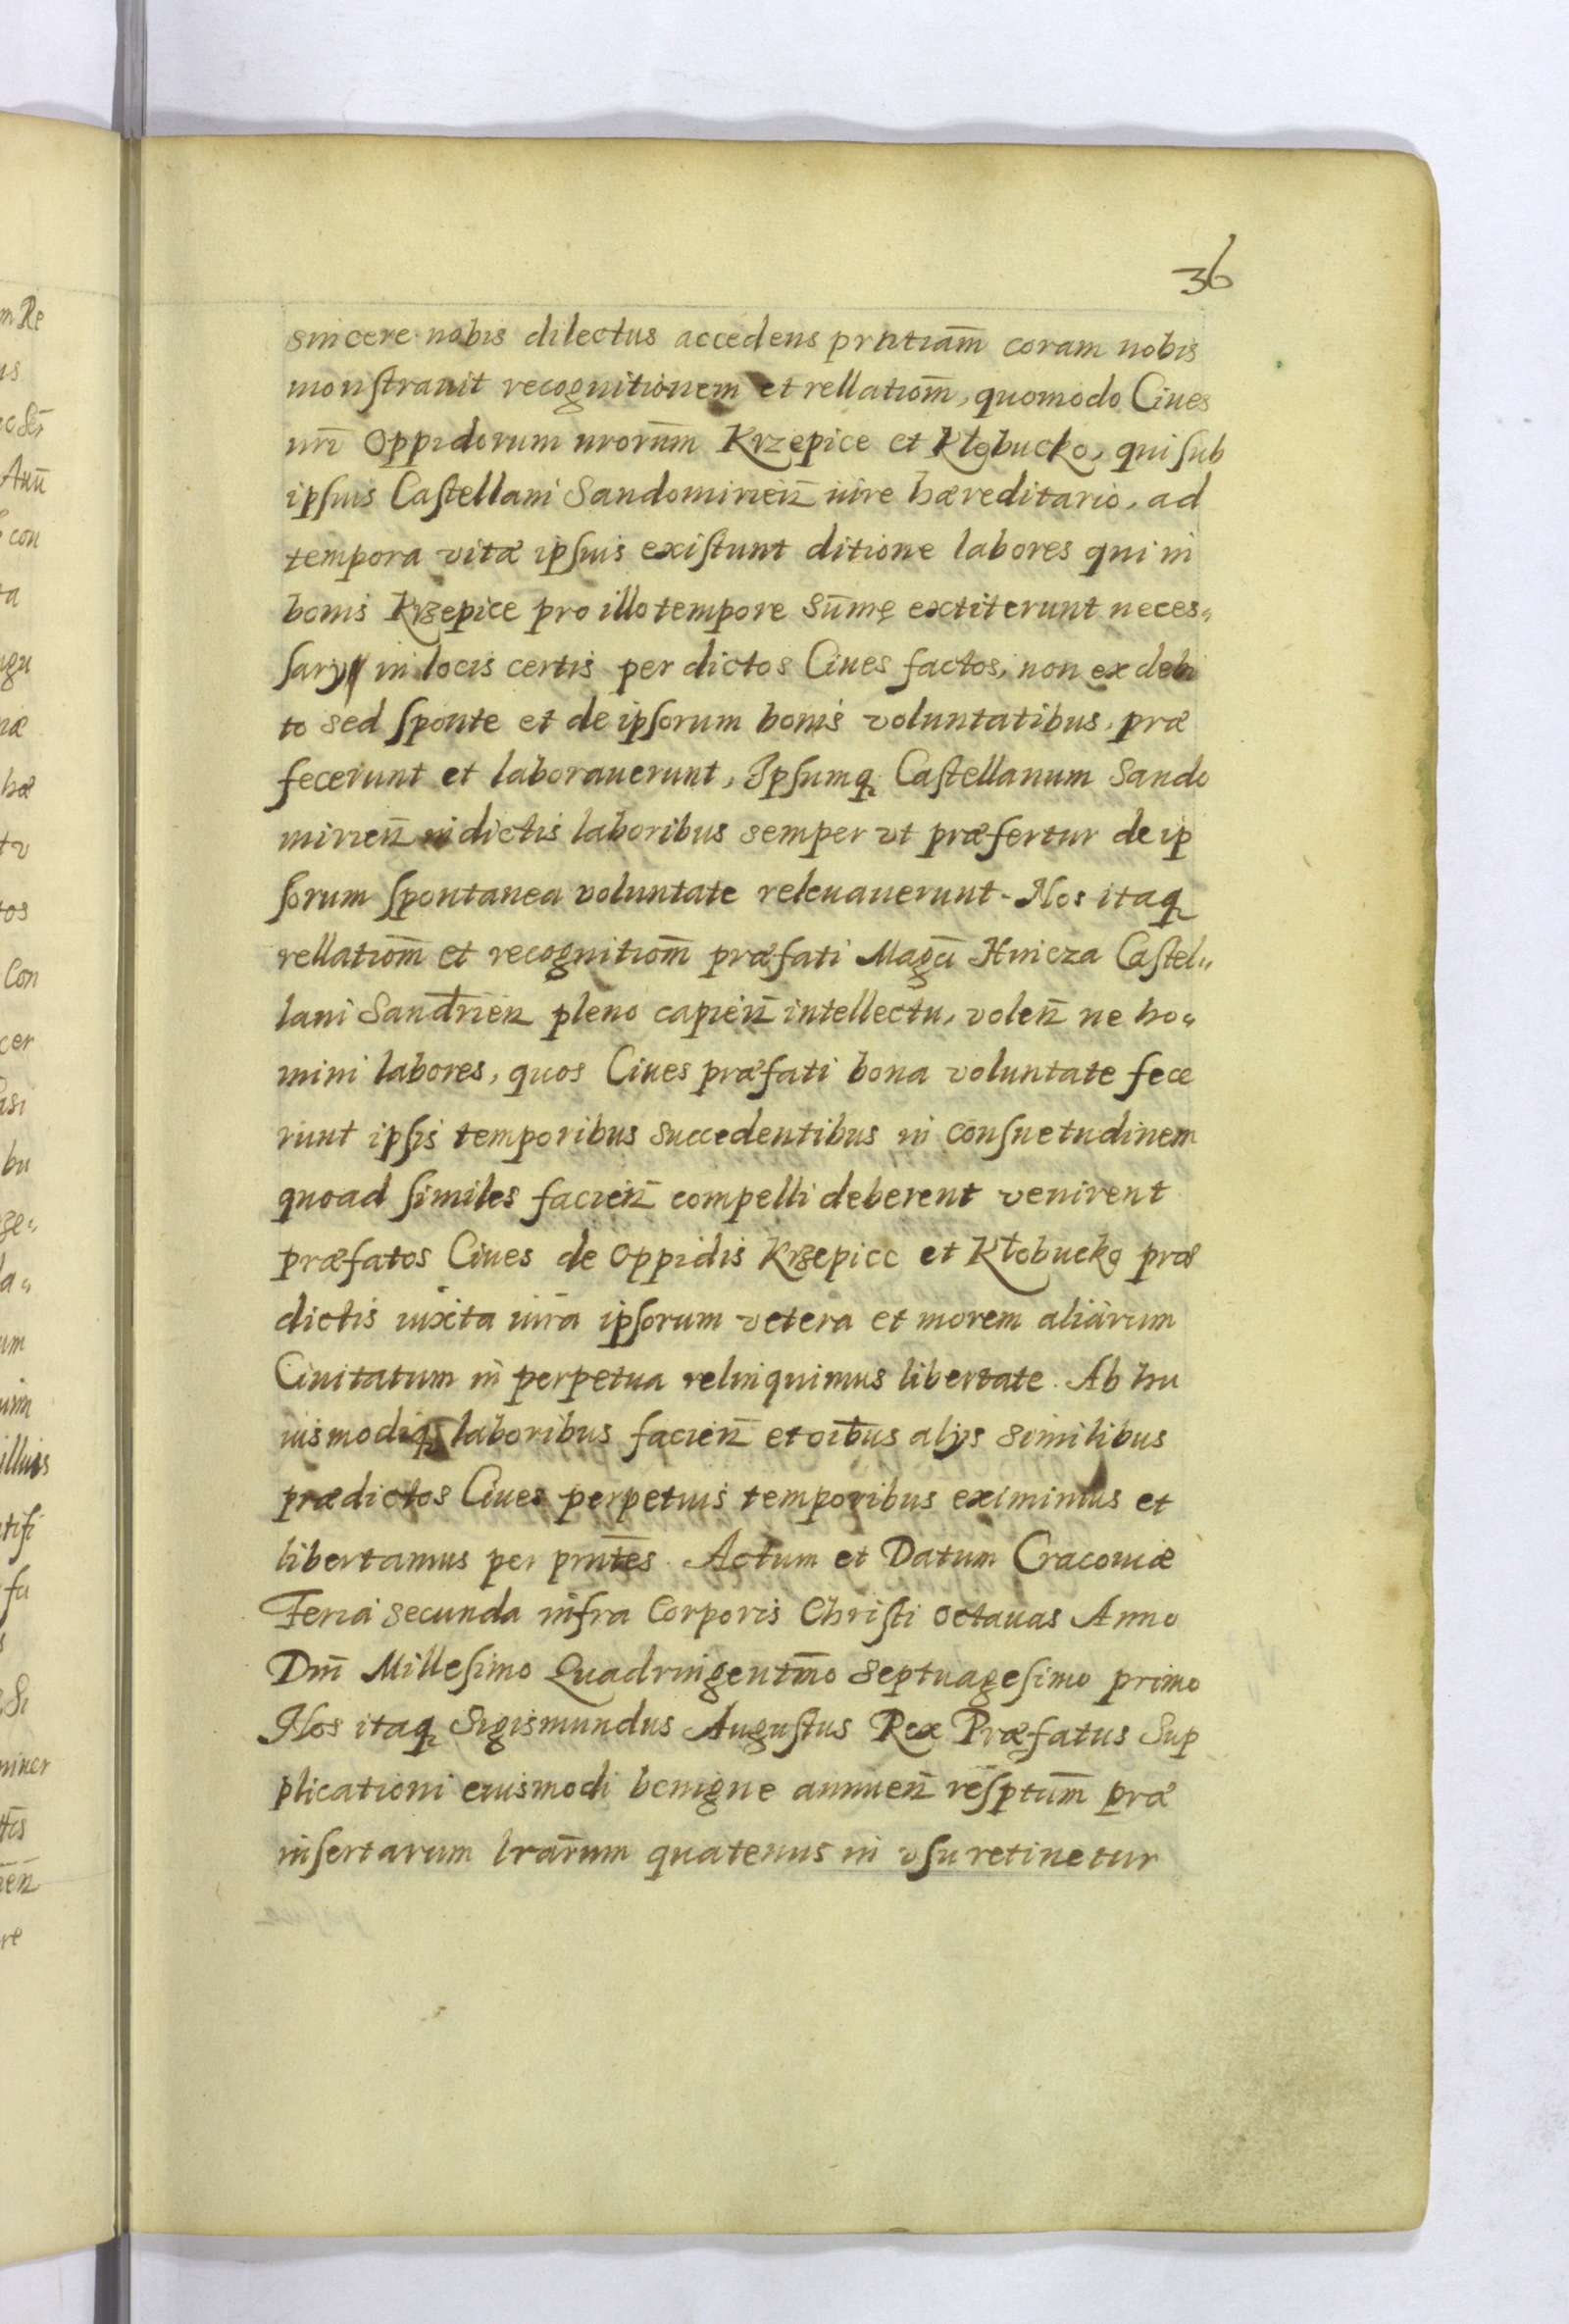 36
sincere nobis dilectus accedens prntiam̄ coram nobis
monstrauit recognitionem et rellatiom̄, quomodo Ciues
nrī Oppidorum nrorum̄ Krzepice et Kłobucko, qui sub
ipsius Castellani Sandomirien̄ iure hæreditario, ad
tempora vitæ ipsius existunt ditione labores qui in
bonis Krzepice pro illo tempore sūmę extiterunt neces„
sarÿ in locis certis per dictos Ciues factos, non ex debi
to sed sponte et de ipsorum bonis voluntatibus, præ
fecerunt et laborauerunt, Ipsumq Castellanum Sando
mirien̄ in dictis laboribus semper vt præfertur de ip
sorum spontanea voluntate releuauerunt. Nos itaq
rellatiom̄ et recognitiom̄ præfati Magcī Hnicza Castel„
lani Sandrien̄ pleno capien̄ intellectu, volen̄ ne ho„
mini labores, quos Ciues præfati bona voluntate fece
runt ipsis temporibus succedentibus in consuetudinem
quoad similes facien̄ compelli deberent venirent
præfatos Ciues de Oppidis Krzepice et Kłobucko præ
dictis iuxta iura ipsorum vetera et morem aliarum
Ciuitatum in perpetua relinquimus libertate. Ab hu
iusmodiq laboribus facien̄ et oībus alÿs similibus
prædictos Ciues perpetuis temporibus eximimus et
libertamus per prntēs. Actum et Datum Cracouiæ
Feria secunda infra Corporis Christi octauas Anno
Dnī Millesimo Quadringentm̄o septuagesimo primo
Nos itaq Sigismundus Augustus Rex Præfatus Sup
plicationi eiusmodi benigne annuen̄ resptum̄ præ
insertarum lrarum̄ quatenus in vsu retinetur